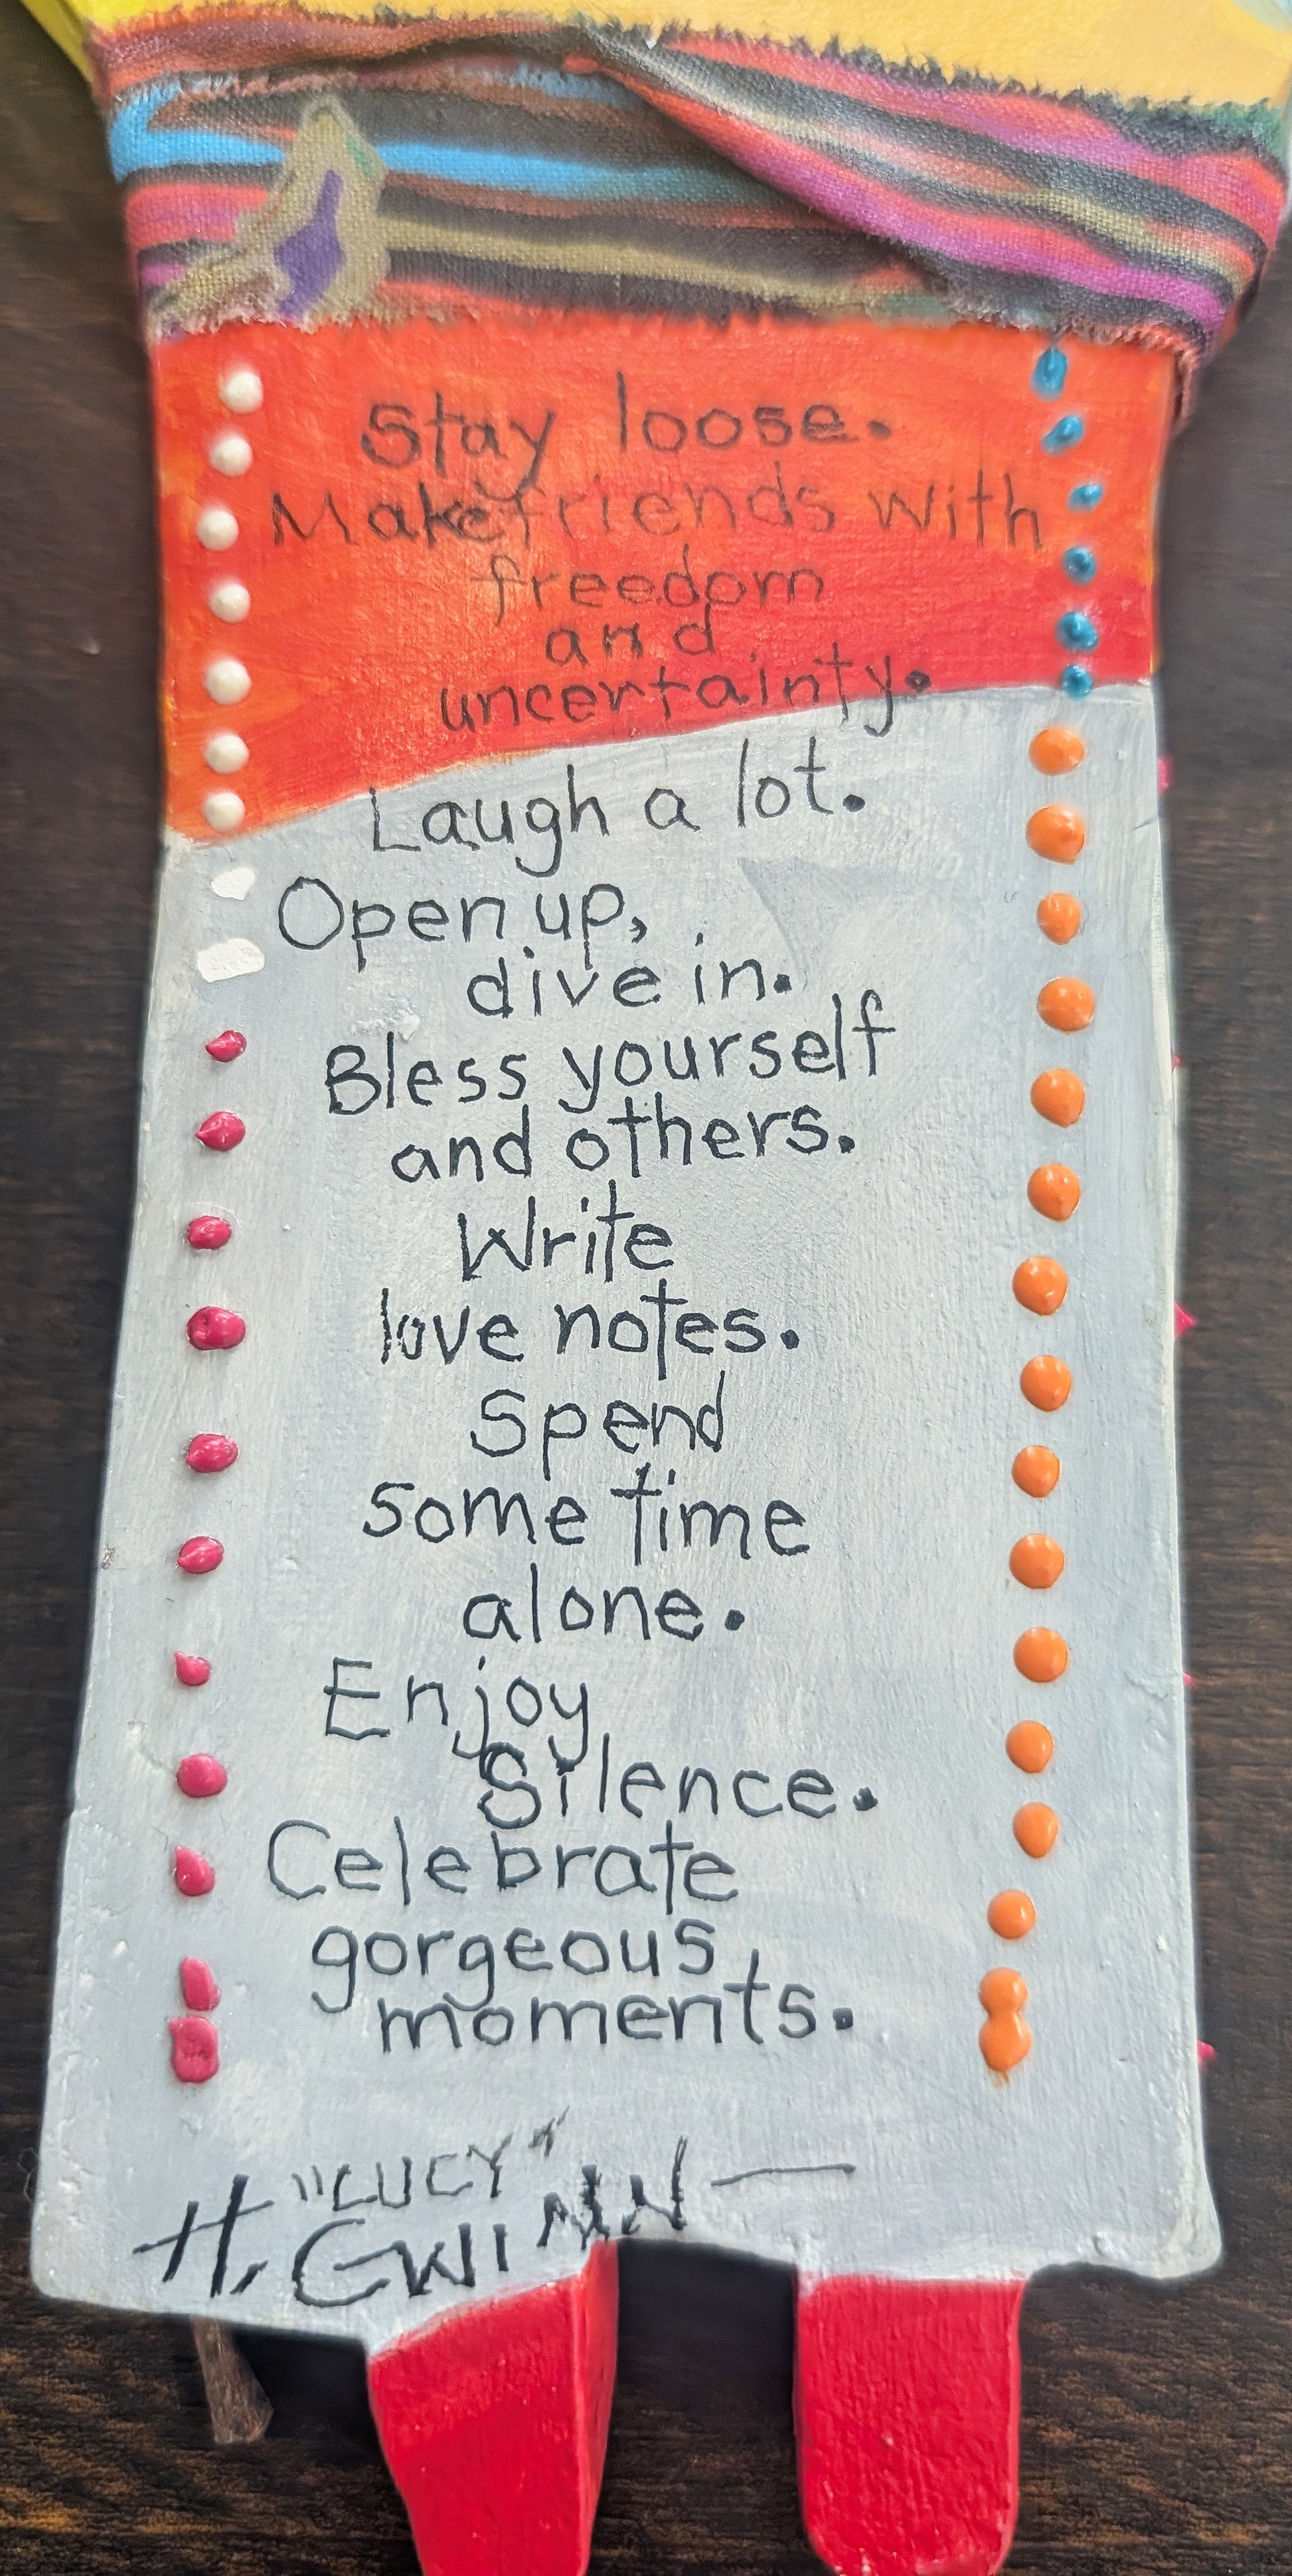 Stay loose.
Make friends with
freedom
and
uncertainty.
Laugh a lot.
Open up,
dive in.
Bless yourself
and others.
Write
love notes.
Spend
some time
alone.
Enjoy
Silence.
Celebrate
gorgeous
moments.
"LUCY"
H. GWINN